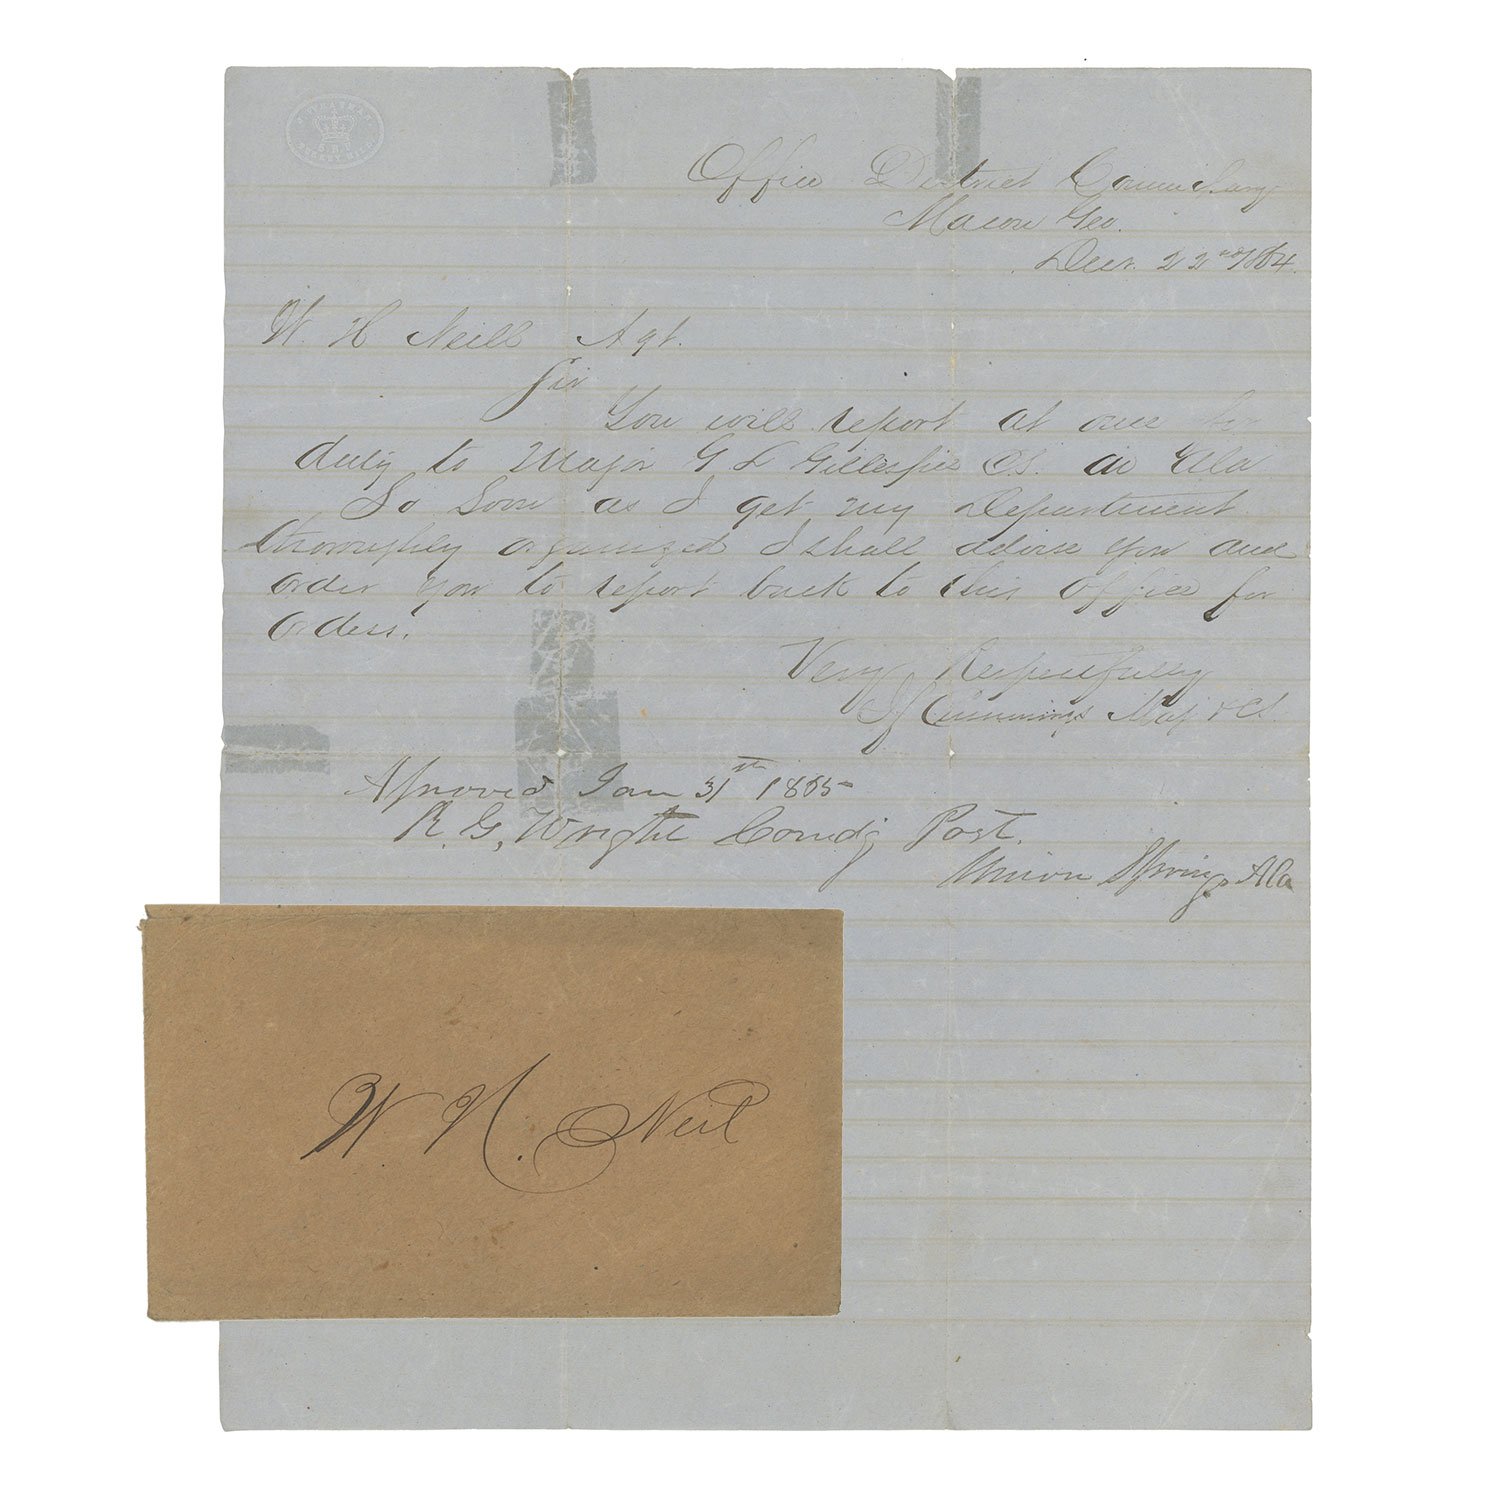 Office District Commissary
Macon Geo.
Decr. 22nd 1864.
W. H Neill Agt.
Sir
You will report at once for
duty to Major G L Gillespie CS. in Ala
So soon as I get my Department
thoroughly organized I shall advise you and
order you to report back to this office for
orders.
Very Respectfully
Cummings Maj & CS.
Aproved Jan 31st 1865
R. G. Wright Comdg Post.
Union Springs Ala
W H. Neil